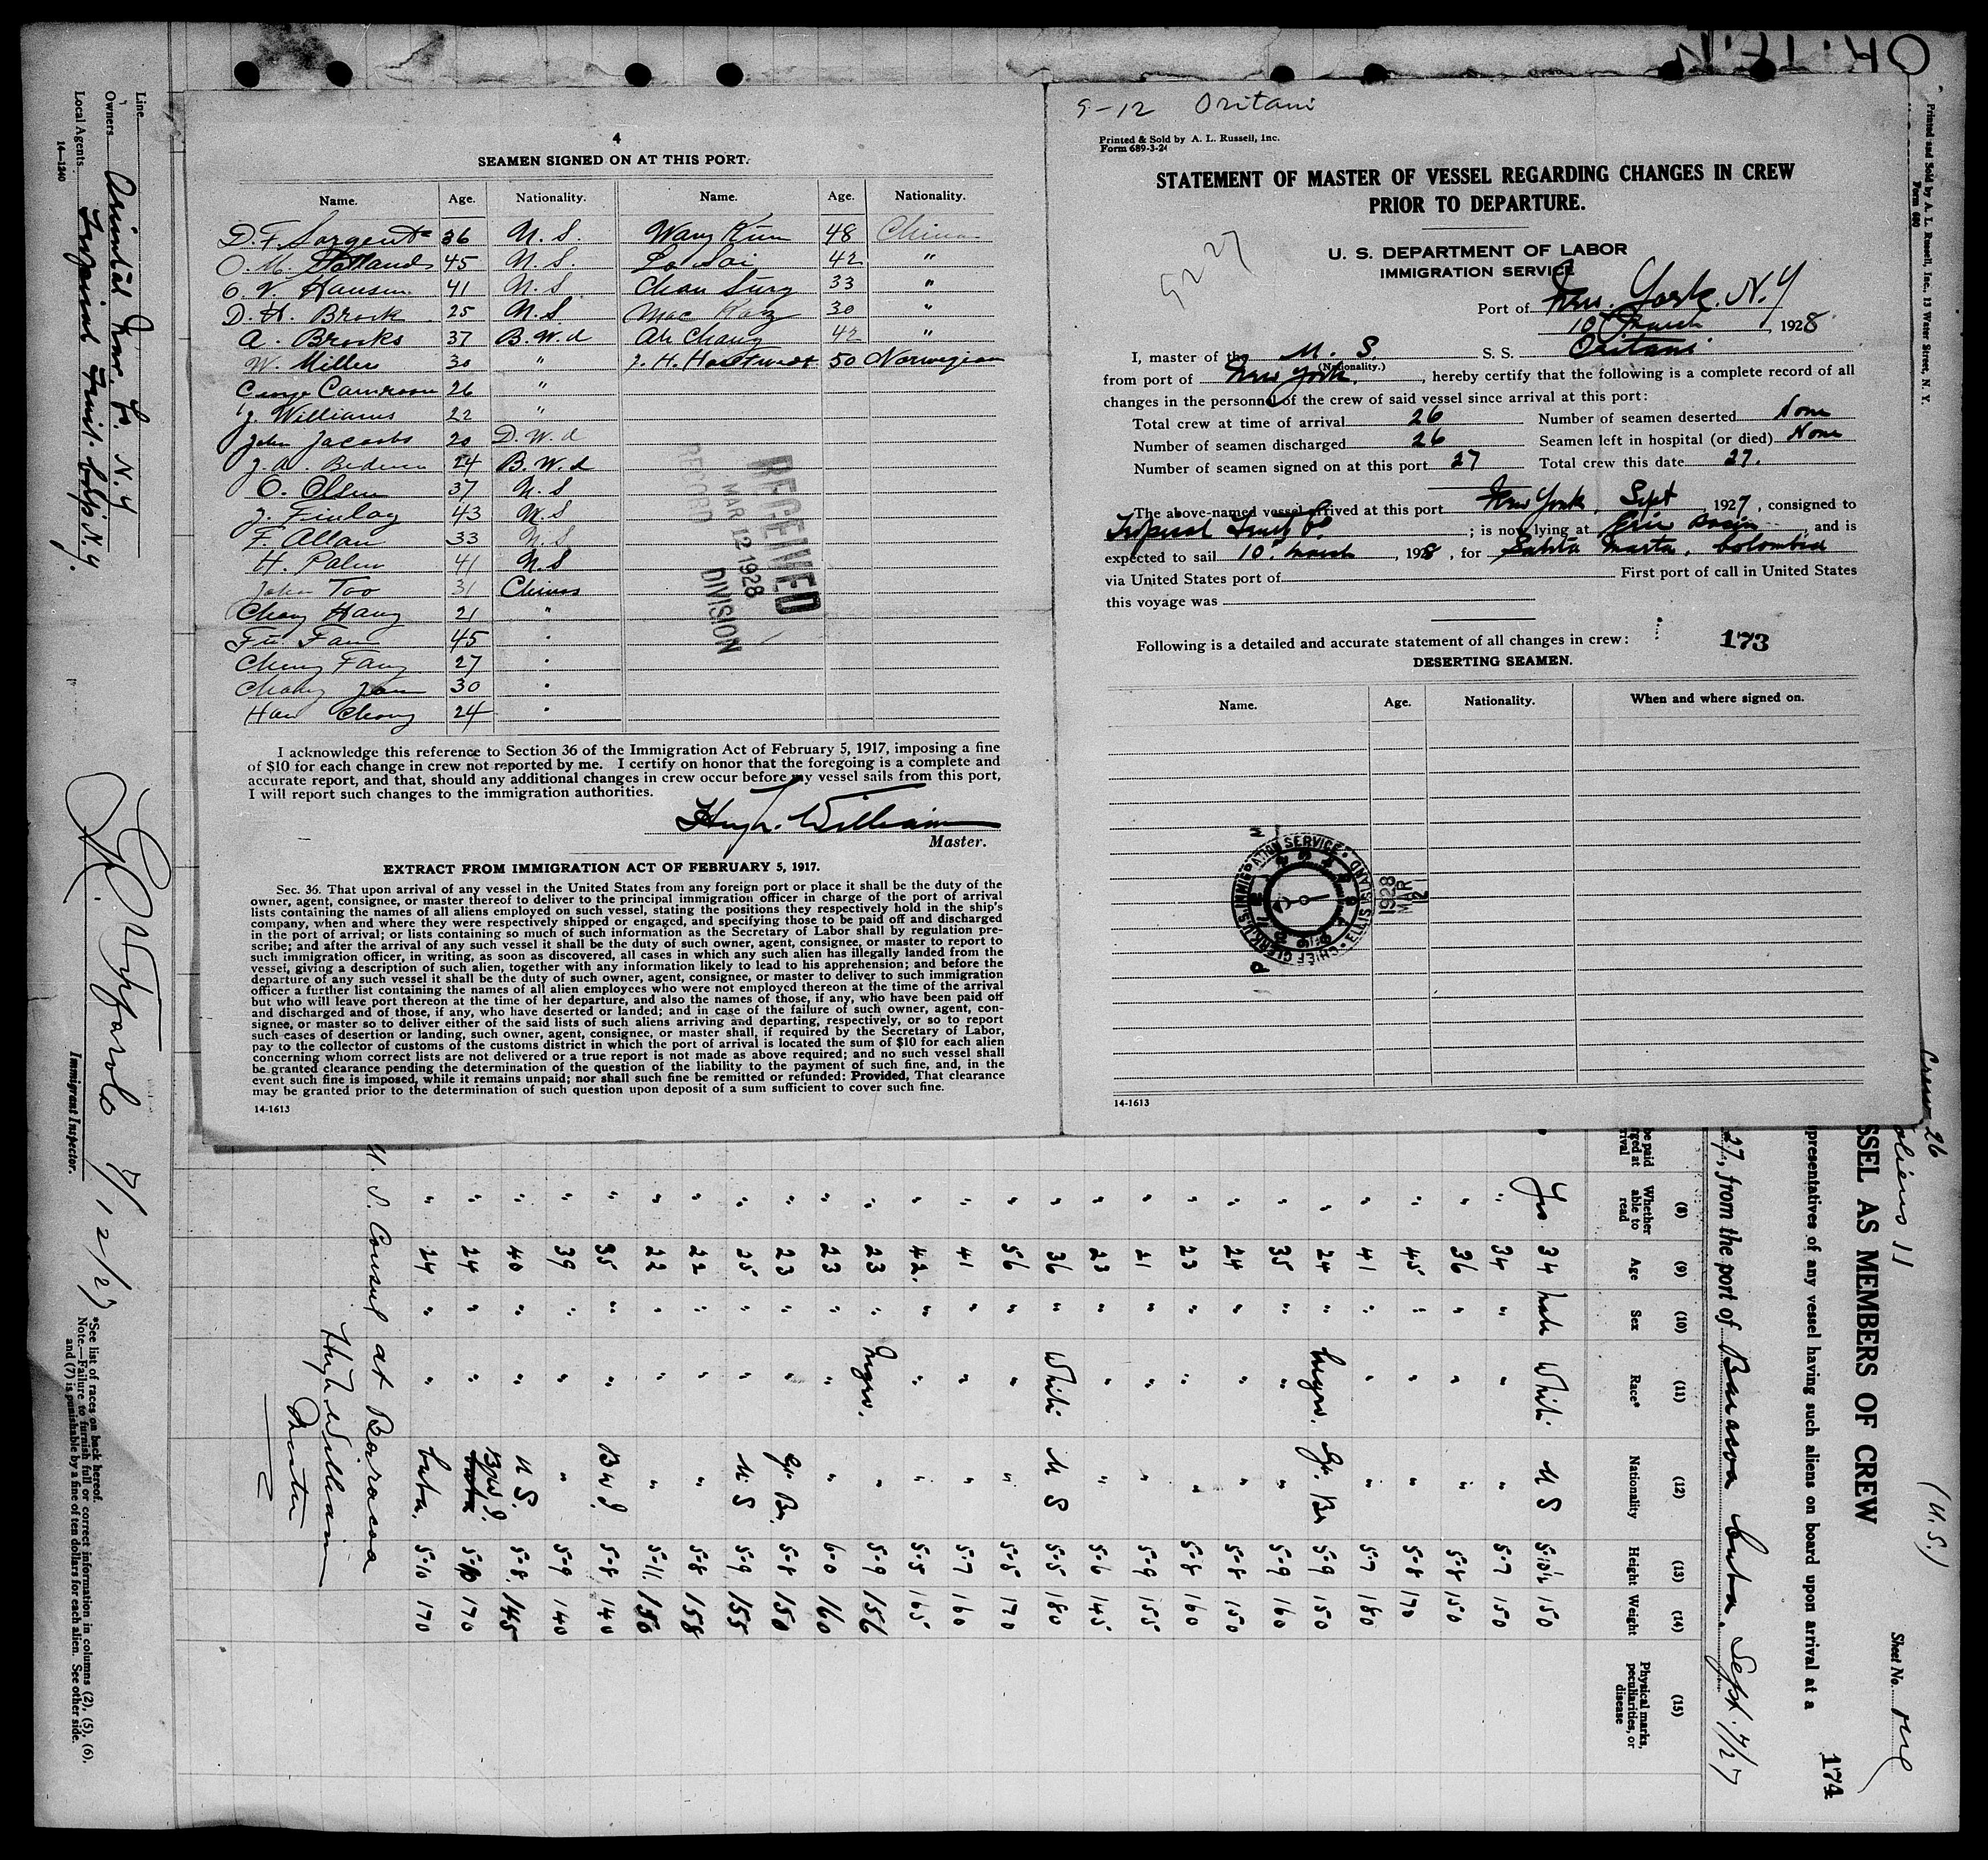 4
SEAMEN SIGNED ON AT THIS PORT.
Name. Age. Nationality. Name. Age. Nationality.
D. F. Sargent 36 U. S. Wang Kum 48 China
O. M. 45 U. S. Lo Soi 42 "
O. V. Hansen 41 U. S. Chan Sung 33 "
D. H. Brock 25 U. S Mac 30 "
A. Brooks 37 B. W. I Ah Chang 42 "
W. Miller 30 " J. H. 50 Norwegian
George Cameroon 26 "
J. Williams 22 "
John Jacobs 20 D. W. I
J. A. 24 B. W. I
O. Olsen 37 U. S
J. Finlay 43 U. S
F. Allan 33 U. S
H. Palm 41 U S
John Too 31 Chinas
Chong Hang 21 "
Fu Fam 45 "
Chung Fang 27 "
Chong 30 "
Han Chong 24 "
RECEIVED
MAR 12 1928
RECORD DIVISION
I acknowledge this reference to Section 36 of the Immigration Act of February 5, 1917, imposing a fine
of $10 for each change in crew not reported by me. I certify on honor that the foregoing is a complete and
accurate report, and that, should any additional changes in crew occur before my vessel sails from this port,
I will report such changes to the immigration authorities.
Hugh William
Master.
EXTRACT FROM IMMIGRATION ACT OF FEBRUARY 5, 1917.
Sec. 36. That upon arrival of any vessel in the United States from any foreign port or place it shall be the duty of the
owner, agent, consignee, or master thereof to deliver to the principal immigration officer in charge of the port of arrival
lists containing the names of all aliens employed on such vessel, stating the positions they respectively hold in the ship's
company, when and where they were respectively shipped or engaged, and specifying those to be paid off and discharged
in the port of arrival; or lists containing so much of such information as the Secretary of Labor shall by regulation pre-
scribe; and after the arrival of any such vessel it shall be the duty of such owner, agent, consignee, or master to report to
such immigration officer, in writing, as soon as discovered, all cases in which any such alien has illegally landed from the
vessel, giving a description of such alien, together with any information likely to lead to his apprehension; and before the
departure of any such vessel it shall be the duty of such owner, agent, consignee, or master to deliver to such immigration
officer a further list containing the names of all alien employees who were not employed thereon at the time of the arrival
but who will leave port thereon at the time of her departure, and also the names of those, if any, who have been paid off
and discharged and of those, if any, who have deserted or landed; and in case of the failure of such owner, agent, con-
signee, or master so to deliver either of the said lists of such aliens arriving and departing, respectively, or so to report
such cases of desertion or landing, such owner, agent, consignee, or master shall, if required by the Secretary of Labor,
pay to the collector of customs of the customs district in which the port of arrival is located the sum of $10 for each alien
concerning whom correct lists are not delivered or a true report is not made as above required; and no such vessel shall
be granted clearance pending the determination of the question of the liability to the payment of such fine, and, in the
event such fine is imposed, while it remains unpaid; nor shall such fine be remitted or refunded: Provided, That clearance
may be granted prior to the determination of such question upon deposit of a sum sufficient to cover such fine.
14-1613
9-12 Oritani
Printed & Sold by A. L. Russell, Inc.
Form 689-3-24
STATEMENT OF MASTER OF VESSEL REGARDING CHANGES IN CREW
PRIOR TO DEPARTURE.
9227
U. S. DEPARTMENT OF LABOR
IMMIGRATION SERVICE
Port of New York. N. Y
10 March, 1928
I, master of the U. S. S. S. Oritani
(Nationality.)
from port of New York, hereby certify that the following is a complete record of all
changes in the personnel of the crew of said vessel since arrival at this port:
Total crew at time of arrival 26 Number of seamen deserted None
Number of seamen discharged 26 Seamen left in hospital (or died) None
Number of seamen signed on at this port 27 Total crew this date 27.
The above-named vessel arrived at this port New York, Sept, 1927, consigned to
Tropical Fruit Co.; is now lying at Erie Basin, and is
expected to sail 10 March, 1928, for Santa Marta, Colombia
via United States port of First port of call in United States
this voyage was
Following is a detailed and accurate statement of all changes in crew: 173
DESERTING SEAMEN.
Name. Age. Nationality. When and where signed on.
CHIEF CLERK U. S. IMMIGRATION SERVICE ELLIS ISLAND
MAR 12 1928
14-1613
Line
Owners Oriental Nav. Co. N. Y
Local Agents Tropical Fruit. Corp N. Y.
14-1240
9/12/27
Immigrant Inspector.
*See list of races on back hereof.
Note.—Failure to furnish full or correct information in columns (2), (5), (6),
and (7) is punishable by a fine of ten dollars for each alien. See other side.
Printed and Sold by A. L. Russell, Inc., 13 Water Street, N. Y.
Form 680
Crew 26
aliens 11
(U. S.)
Sheet No. one
SSEL AS MEMBERS OF CREW
174
presentatives of any vessel having such aliens on board upon arrival at a
27, from the port of Baracoa Cuba. Sept. 7/27
be paid
rged at
rival
(8) Whether able to read (9) Age (10) Sex (11) Race* (12) Nationality (13) Height (14) Weight (15) Physical marks, peculiarities, or disease
Yes 34 male White U S 5-10½ 150
" 34 " " " 5-7 150
" 36 " " " 5-8 150
" 45 " " " 5-8 170
" 41 " " " 5-7 180
" 24 " Negro. Gr. Br 5-9 150
" 35 " " " 5-9 160
" 24 " " " 5-8 150
" 23 " " " 5-8 160
" 21 " " " 5-9 155
" 23 " " " 5-6 145
" 36 " White U S 5-5 180
" 56 " " " 5-8 170
" 41 " " " 5-7 160
" 42. " " " 5-5 165
" 23 " Negro. " 5-9 156
" 23 " " " 6-0 160
" 23 " " Gr Br. 5-8 150
" 25 " " U S 5-9 155
" 22 " " " 5-8 158
" 22 " " " 5-11 150
" 35 " " B W I 5-8 140
" 39 " " " 5-9 140
" 40 " " U S. 5-8 145
" 24 " " B.W.I. 5-10 170
" 24 " " Cuba. 5-10 170
U. S. Consul at Baracoa
Hugh William
Master